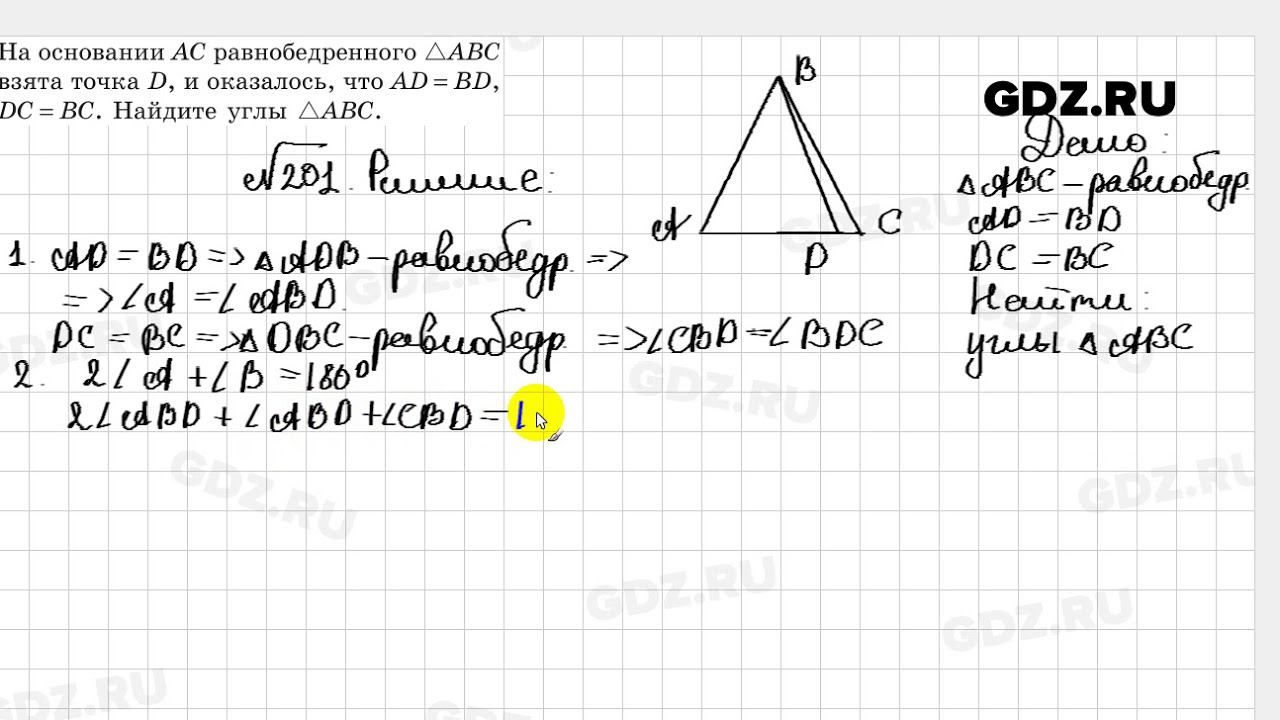 На основании AC равнобедренного △ABC
взята точка D, и оказалось, что AD = BD,
DC = BC. Найдите углы △ABC.
GDZ.RU
B
A
C
D
√201. Решение:
Дано:
△ABC – равнобедр.
AD = BD
DC = BC
Найти:
углы △ABC
1. AD = BD => △ADB – равнобедр. =>
=> ∠A = ∠ABD.
DC = BC => △DBC – равнобедр. => ∠CBD = ∠BDC
2. 2∠A + ∠B = 180°
2∠ABD + ∠ABD + ∠CBD = 1
GDZ.RU
GDZ.RU
GDZ.RU
GDZ.RU
GDZ.RU
GDZ.RU
GDZ.RU
GDZ.RU
GDZ.RU
GDZ.RU